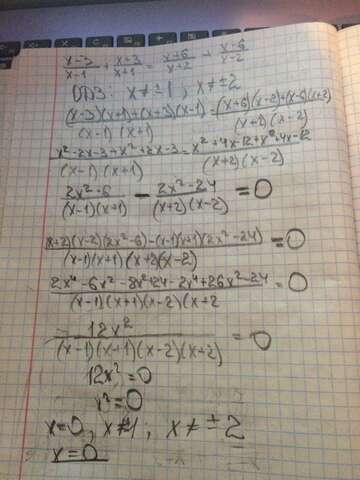 x-3/x-1 + x+3/x+1 = x+6/x+2 + x-6/x-2
ОДЗ: x≠±1; x≠±2
(x-3)(x+1)+(x+3)(x-1)/(x-1)(x+1) = (x+6)(x-2)+(x-6)(x+2)/(x+2)(x-2)
x²-2x-3+x²+2x-3/(x-1)(x+1) = x²+4x-12+x²-4x-12/(x+2)(x-2)
2x²-6/(x-1)(x+1) - 2x²-24/(x+2)(x-2) = 0
(x+2)(x-2)(2x²-6)-(x-1)(x+1)(2x²-24)/(x-1)(x+1)(x+2)(x-2) = 0
2x⁴-6x²-8x²+24-2x⁴+26x²-24/(x-1)(x+1)(x-2)(x+2 = 0
12x²/(x-1)(x+1)(x-2)(x+2) = 0
12x²=0
x²=0
x=0, x≠1; x≠±2
x=0